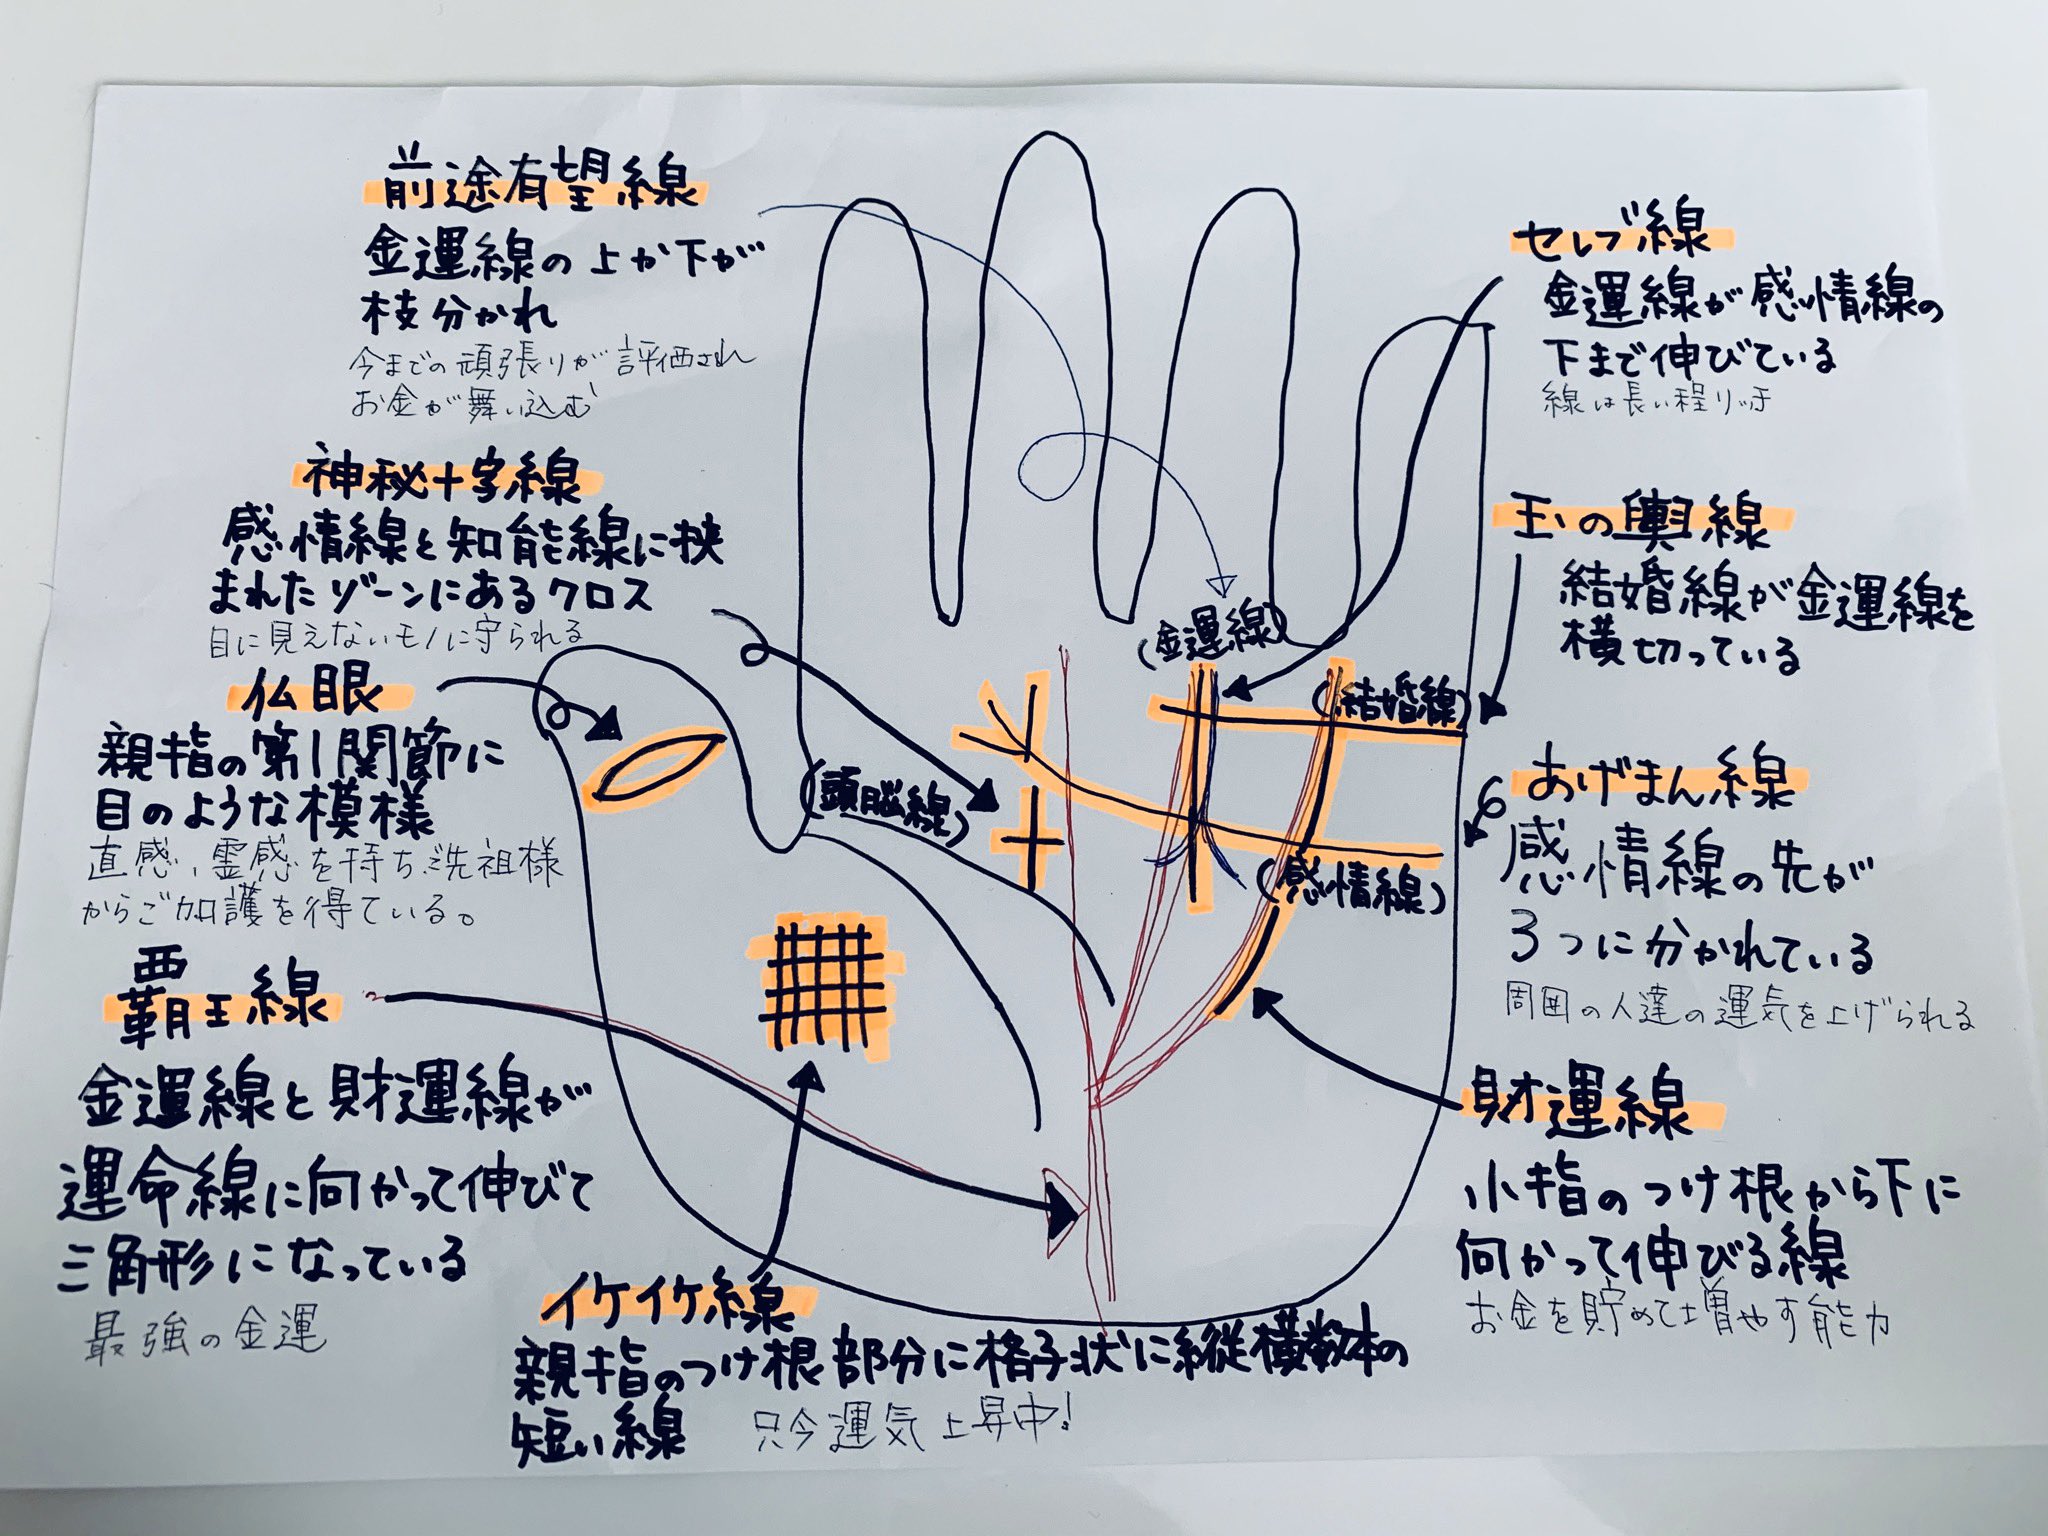 前途有望線
金運線の上か下が
枝分かれ
今までの頑張りが評価され
お金が舞い込む
神秘十字線
感情線と知能線に挟
まれたゾーンにあるクロス
目に見えないモノに守られる
仏眼
親指の第1関節に
目のような模様
直感、霊感を持ちご先祖様
からご加護を得ている。
覇王線
金運線と財運線が
運命線に向かって伸びて
三角形になっている
最強の金運
イケイケ線
親指のつけ根部分に格子状に縦横数本の
短い線
只今運気上昇中!
(金運線)
(結婚線)
(頭脳線)
(感情線)
セレブ線
金運線が感情線の
下まで伸びている
線は長い程リッチ
玉の輿線
結婚線が金運線を
横切っている
あげまん線
感情線の先が
3つに分かれている
周囲の人達の運気を上げられる
財運線
小指のつけ根から下に
向かって伸びる線
お金を貯めて増やす能力